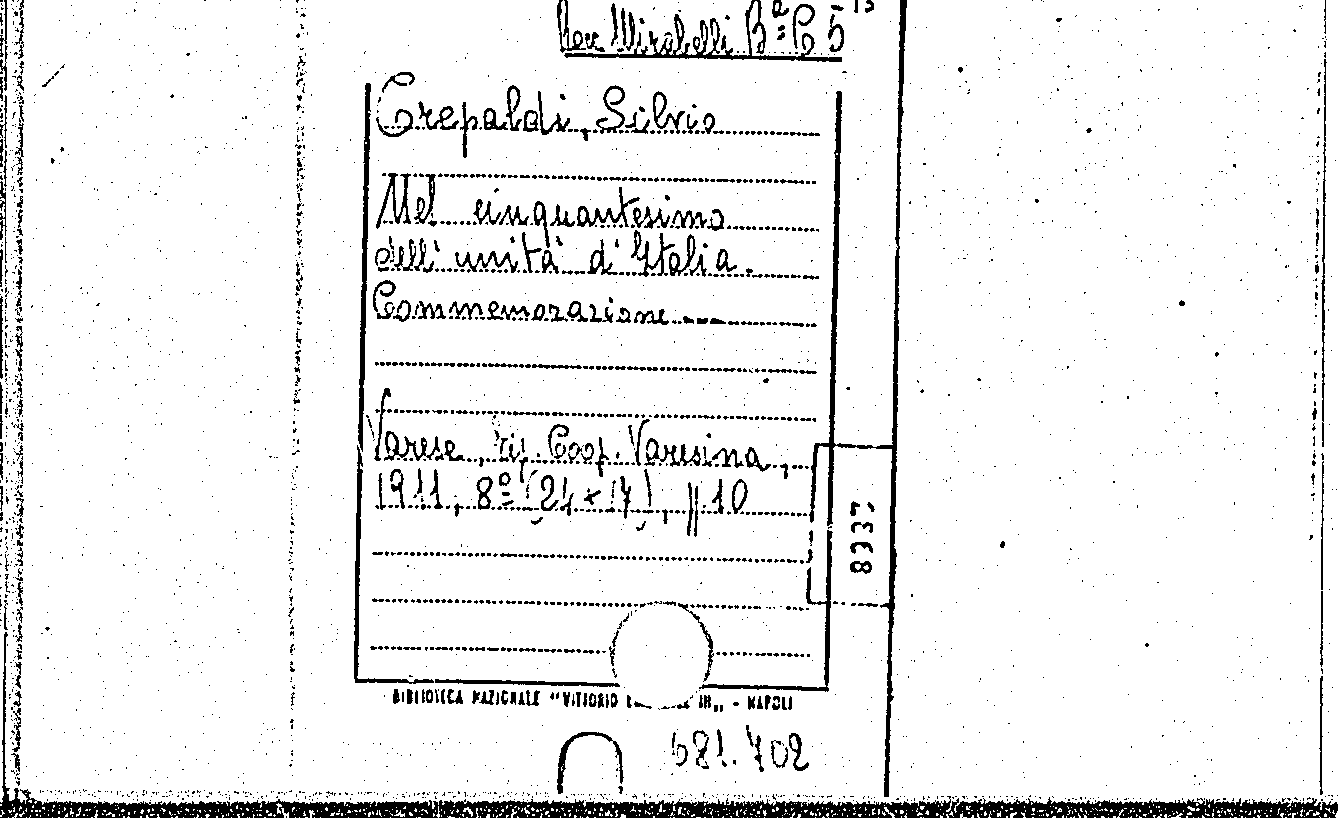 Mirabelli Bª C 5 13
Crepaldi, Silvio
Nel cinquantesimo
dell'unità d'Italia.
Commemorazione ...
Varese, Tip. Coop. Varesina,
1911, 8º (24 x 17), pp 10
8337
BIBLIOTECA NAZIONALE "VITTORIO III„ - NAPOLI
681.702